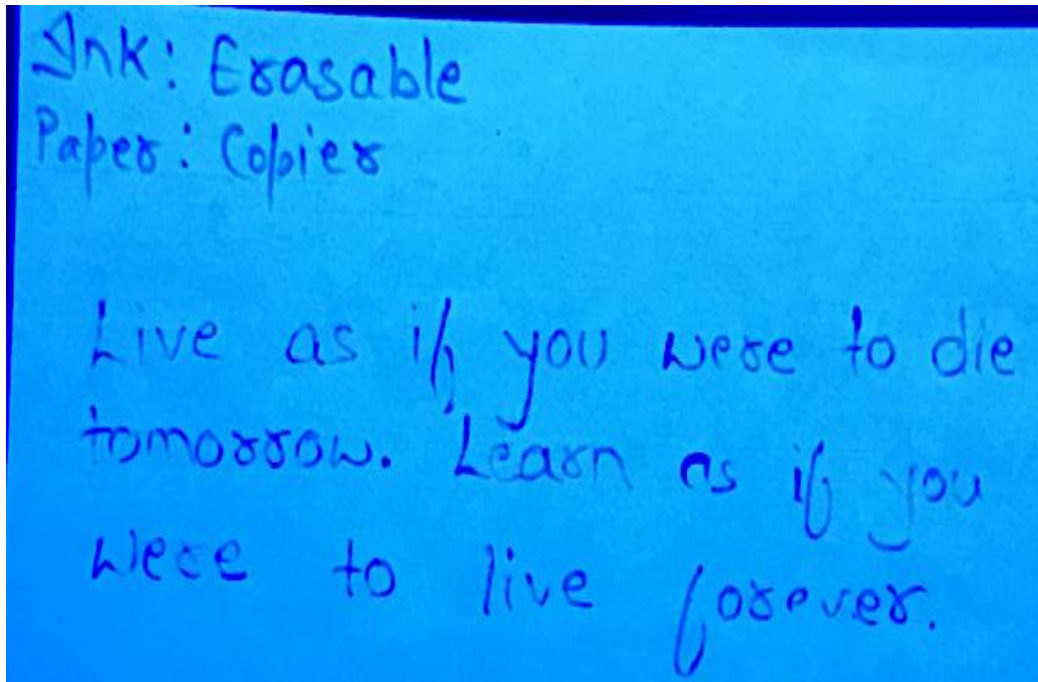 Ink: Erasable
Paper: Copier
Live as if you were to die
tomorrow. Learn as if you
were to live forever.